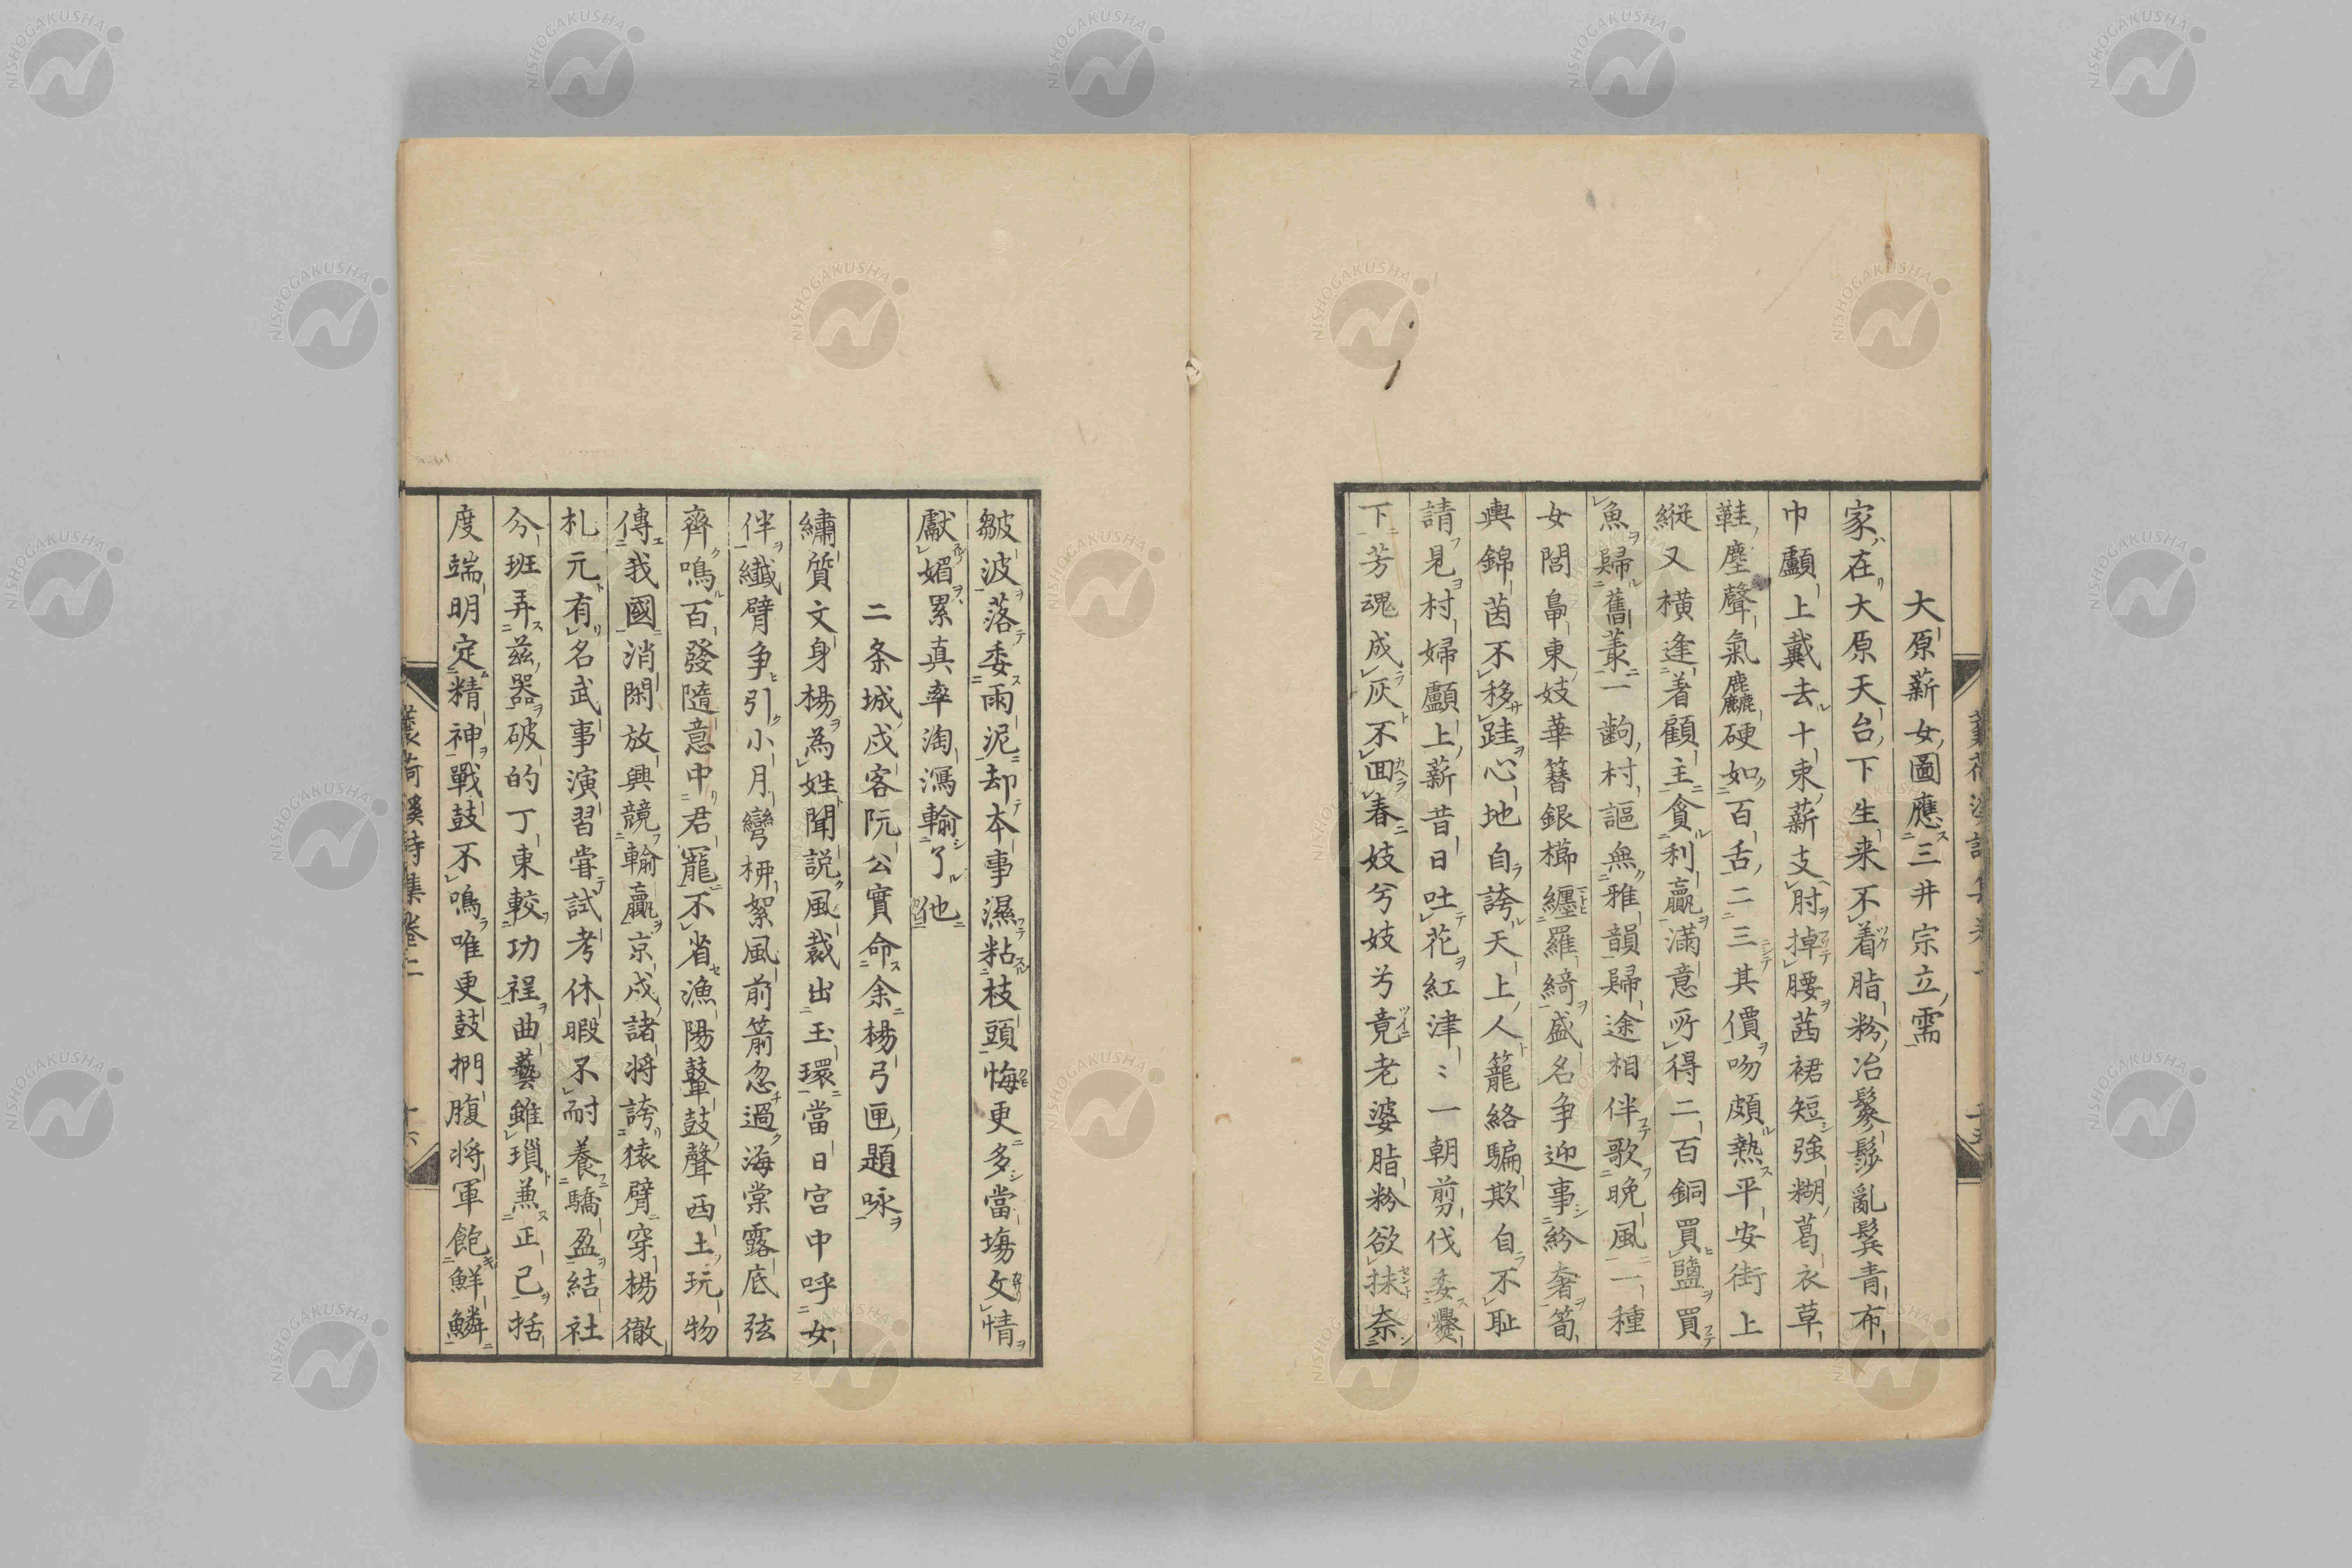 大原薪女圖應三井宗立需
家在大原天台下生来不着脂粉冶鬖髿亂鬂青布
巾顱上戴去十束薪支肘掉腰茜裙短強糊葛衣草
鞋塵聲氣麤硬如百舌二三其價吻頗熱平安街上
縦又横逢着顧主貪利贏滿意所得二百銅買鹽買
魚歸舊叢一齣村謳無雅韻歸途相伴歌晚風一種
女閭鳧東妓華簪銀櫛纏羅綺盛名争迎事紛奢筍
輿錦茵不移跬心地自誇天上人籠絡騙欺自不耻
請見村婦顱上薪昔日吐花紅津〻一朝剪伐委爨
下芳魂成灰不回春妓兮妓兮竟老婆脂粉欲抹奈
皺波落委雨泥却本事濕粘枝頭悔更多當塲攵情
獻媚累真率淘瀉輸了他
二条城戍客阮公實命余楊弓匣題咏
繡質文身楊為姓聞説風裁出玉環當日宮中呼女
伴纖臂争引小月彎枡絮風前箭忽過海棠露底弦
齊鳴百發隨意中君寵不省漁陽鼙鼓聲西土玩物
傳我國消閑放興競輸贏京戍諸将誇猿臂穿楊徹
札元有名武事演習甞試考休暇不耐養驕盈結社
分班弄茲器破的丁東較功程曲藝雖瑣兼正己括
度端明定精神戰鼓不鳴唯更鼓捫腹将軍飽鮮鱗
叢荷溪詩集卷二
十六